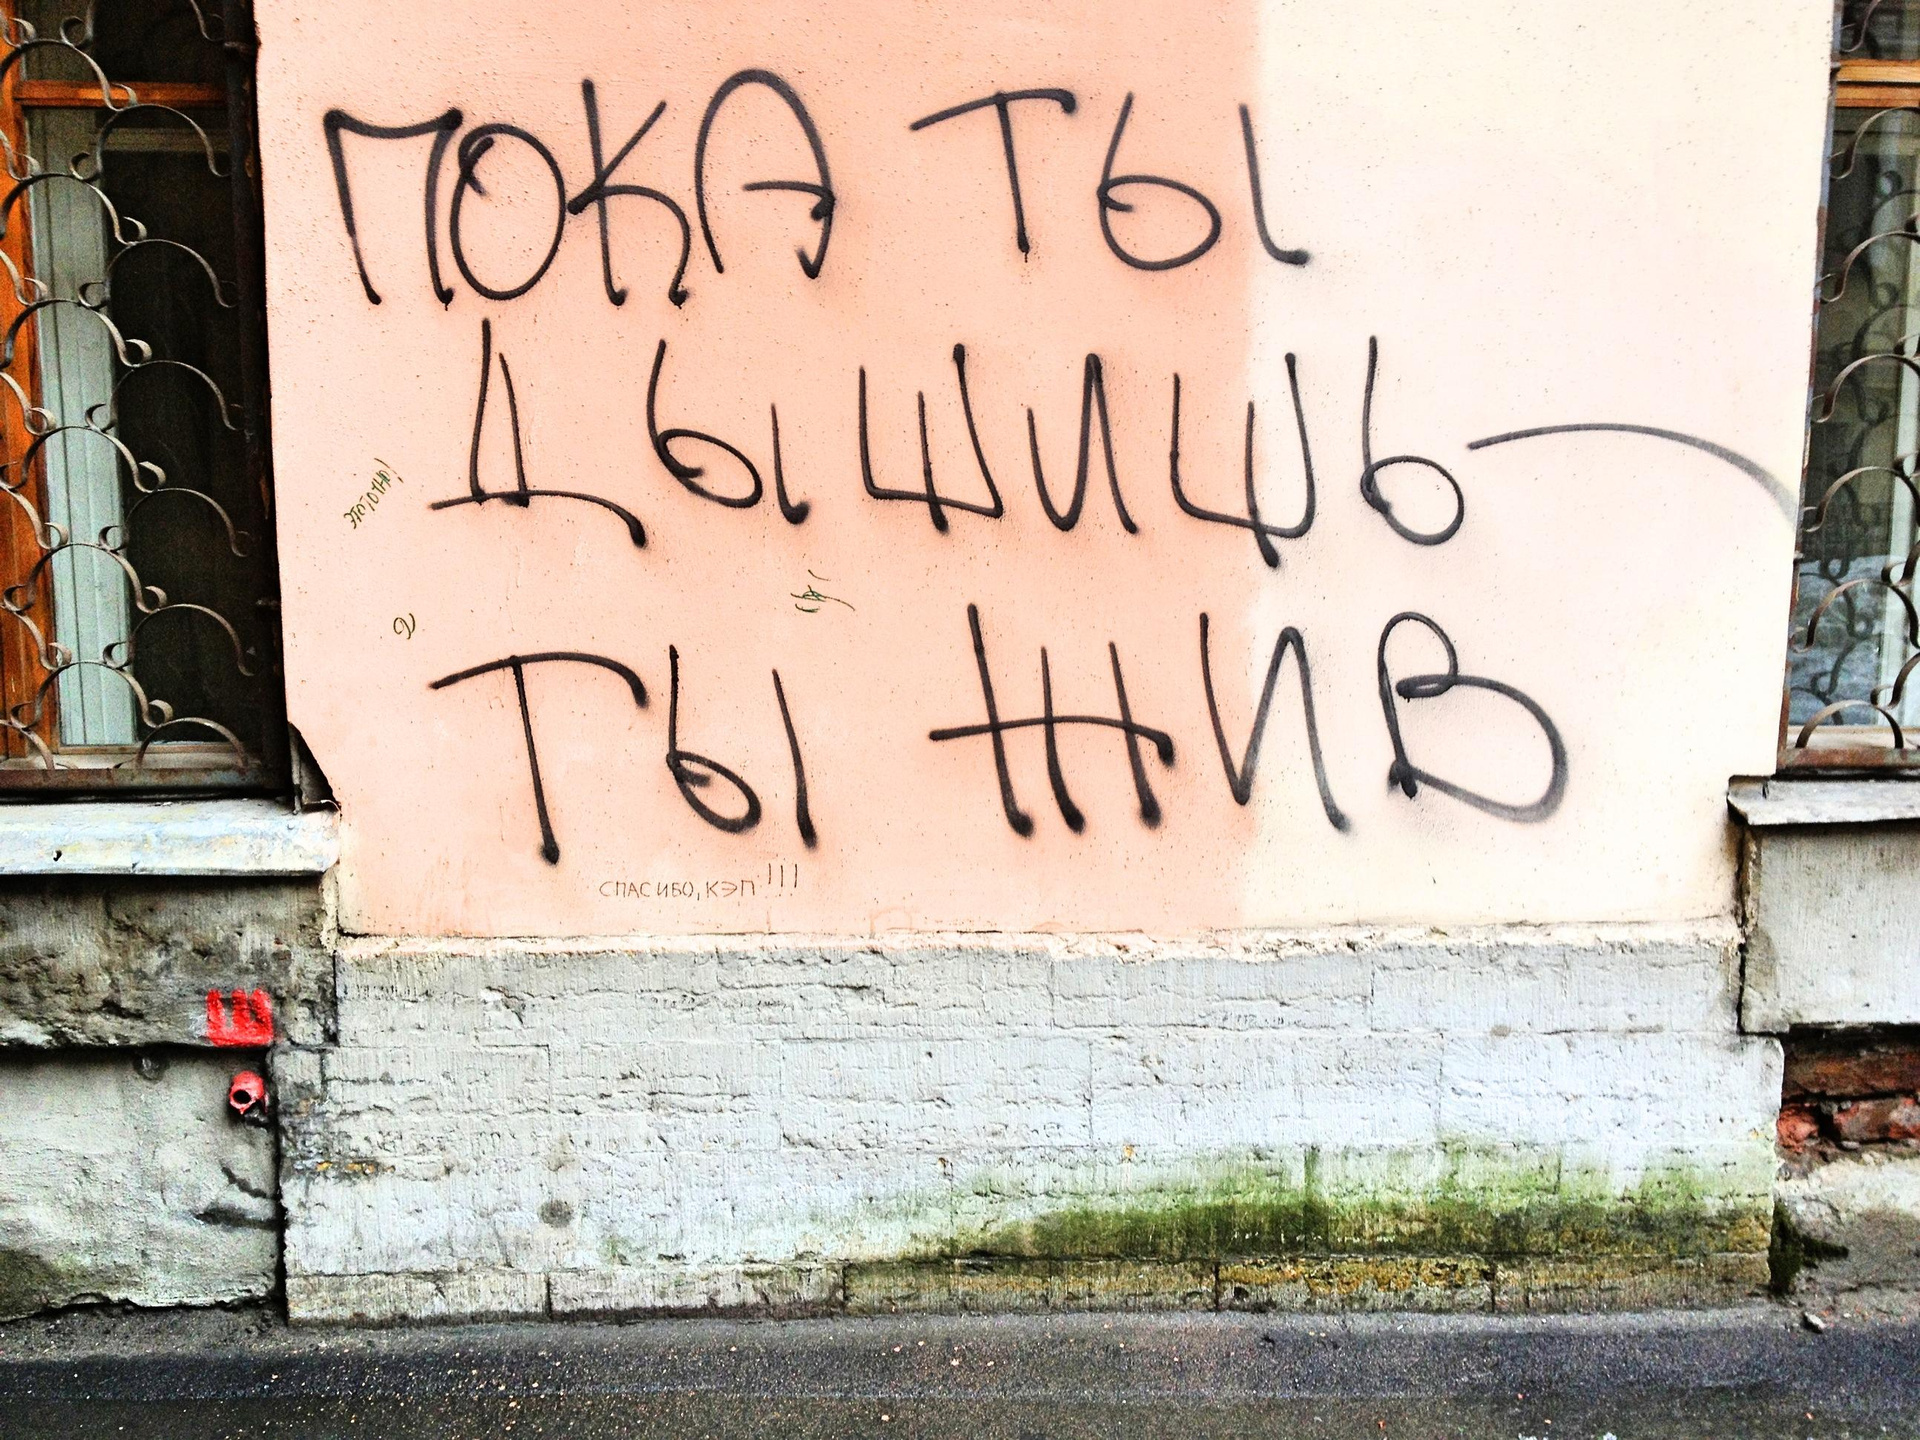 ПОКА ТЫ
ДЫШИШЬ
ТЫ ЖИВ
СПАСИБО, КЭП!!!
Ш